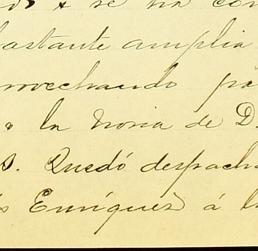 y se ha con
bastante amplia
rovechando pa
a la noria de D.
s. Quedó despach
s Enríquez á l